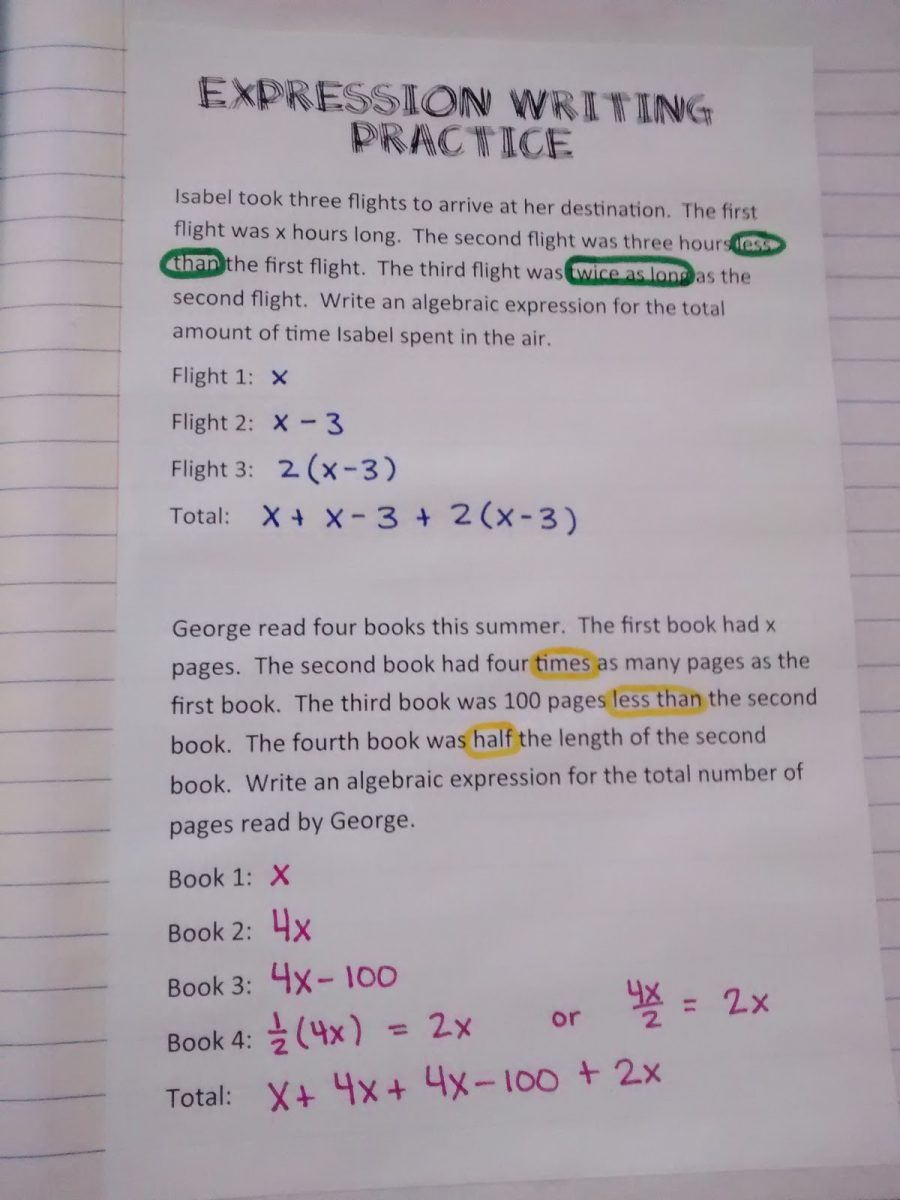 EXPRESSION WRITING
PRACTICE
Isabel took three flights to arrive at her destination. The first
flight was x hours long. The second flight was three hours less
than the first flight. The third flight was twice as long as the
second flight. Write an algebraic expression for the total
amount of time Isabel spent in the air.
Flight 1: x
Flight 2: x - 3
Flight 3: 2(x-3)
Total: x + x - 3 + 2(x-3)
George read four books this summer. The first book had x
pages. The second book had four times as many pages as the
first book. The third book was 100 pages less than the second
book. The fourth book was half the length of the second
book. Write an algebraic expression for the total number of
pages read by George.
Book 1: x
Book 2: 4x
Book 3: 4x - 100
Book 4: 1/2(4x) = 2x or 4x/2 = 2x
Total: x + 4x + 4x - 100 + 2x